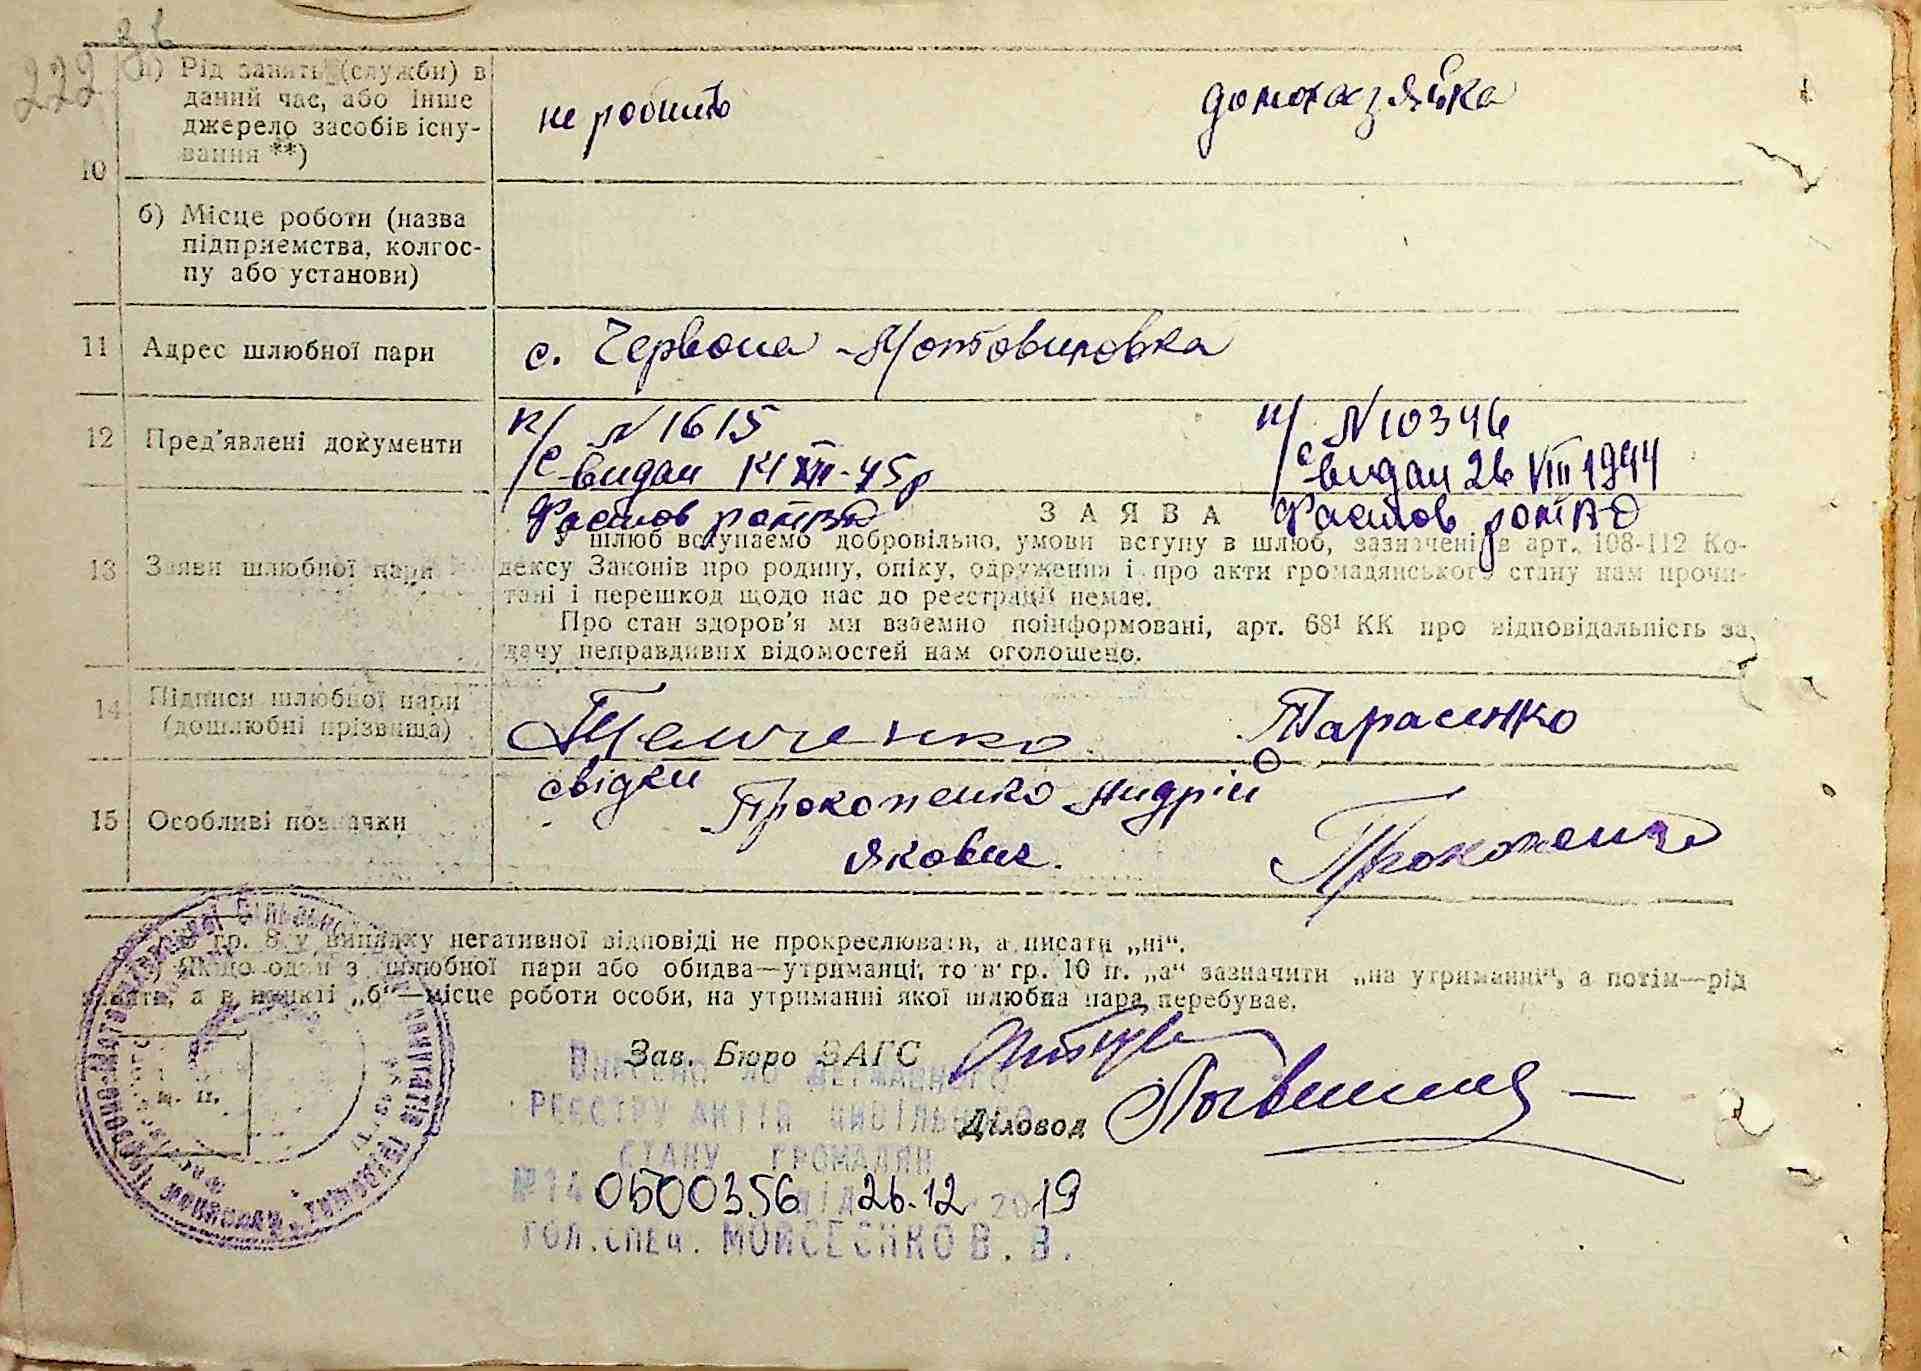 222 зв
10
а) Рід занять (служби) в
даний час, або інше
джерело засобів існу-
вання **)
не робить
домохазяйка
б) Місце роботи (назва
підприємства, колгос-
пу або установи)
11 Адрес шлюбної пари
с. Червона-Мотовиловка
12 Пред'явлені документи
п/с N 1615
видан 14 XII-45р
Фастов ромВД
п/с N 10346
видан 26 VIII 1944
Фастов
13 Заяви шлюбної пари
ЗАЯВА
У шлюб вступаємо добровільно, умови вступу в шлюб, зазначені в арт. 108-112 Ко-
дексу Законів про родину, опіку, одруження і про акти громадянського стану нам прочи-
тані і перешкод щодо нас до реєстрації немає.
Про стан здоров'я ми взаємно поінформовані, арт. 68¹ КК про відповідальність за
дачу неправдивих відомостей нам оголошено.
14 Підписи шлюбної пари
(дошлюбні прізвища)
Тарасенко
15 Особливі позначки
свідки
Прокопенко Андрій
Якович.
Прокопенко
гр. 8 у випадку негативної відповіді не прокреслювати, а писати „ні“.
Якщо один з шлюбної пари або обидва—утриманці, то в гр. 10 п. „а“ зазначити „на утриманні“, а потім—рід
занять, а в пункті „б“—місце роботи особи, на утриманні якої шлюбна пара перебуває.
Зав. Бюро ЗАГС
Діловод
ВНЕСЕНО ДО ДЕРЖАВНОГО
РЕЄСТРУ АКТІВ ЦИВІЛЬНОГО
СТАНУ ГРОМАДЯН
№14 0500356 ВІД 26.12 2019
ГОЛ.СПЕЦ. МОЙСЕЄНКО В. В.